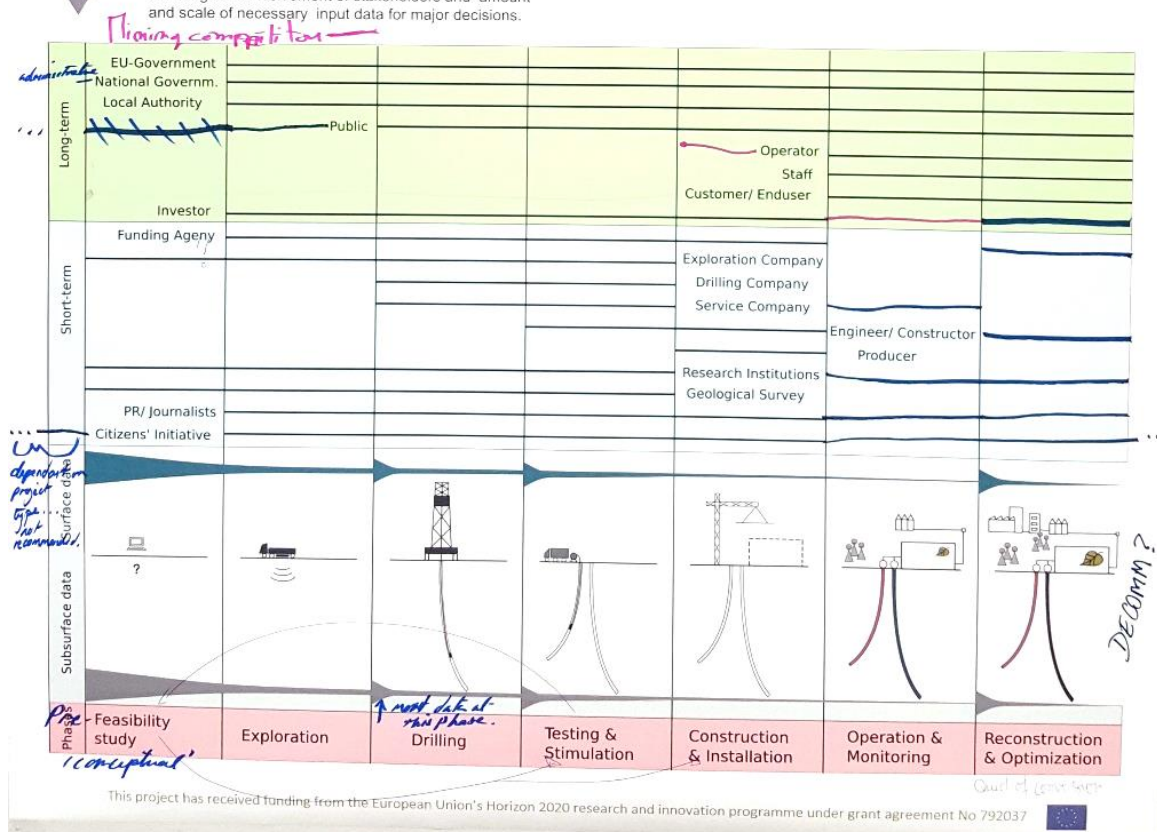 and scale of necessary input data for major decisions.
Mining competitor
administrative
EU-Government
National Governm.
Local Authority
...
Public
Operator
Staff
Customer/ Enduser
Investor
Long-term
Funding Ageny
Exploration Company
Drilling Company
Service Company
Engineer/ Constructor
Producer
Research Institutions
Geological Survey
PR/ Journalists
Citizens' Initiative
Short-term
...
dependant on
project
type...
not
recommended.
Surface data
?
Subsurface data
DECOMM?
most data at
this phase.
Phases
Pre-
Feasibility
study
"conceptual"
Exploration
Drilling
Testing &
Stimulation
Construction
& Installation
Operation &
Monitoring
Reconstruction
& Optimization
This project has received funding from the European Union's Horizon 2020 research and innovation programme under grant agreement No 792037